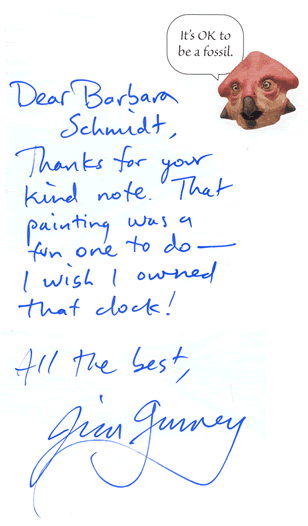 It's OK to
be a fossil.
Dear Barbara
Schmidt,
Thanks for your
kind note. That
painting was a
fun one to do—
I wish I owned
that clock!
All the best,
Jim Gurney